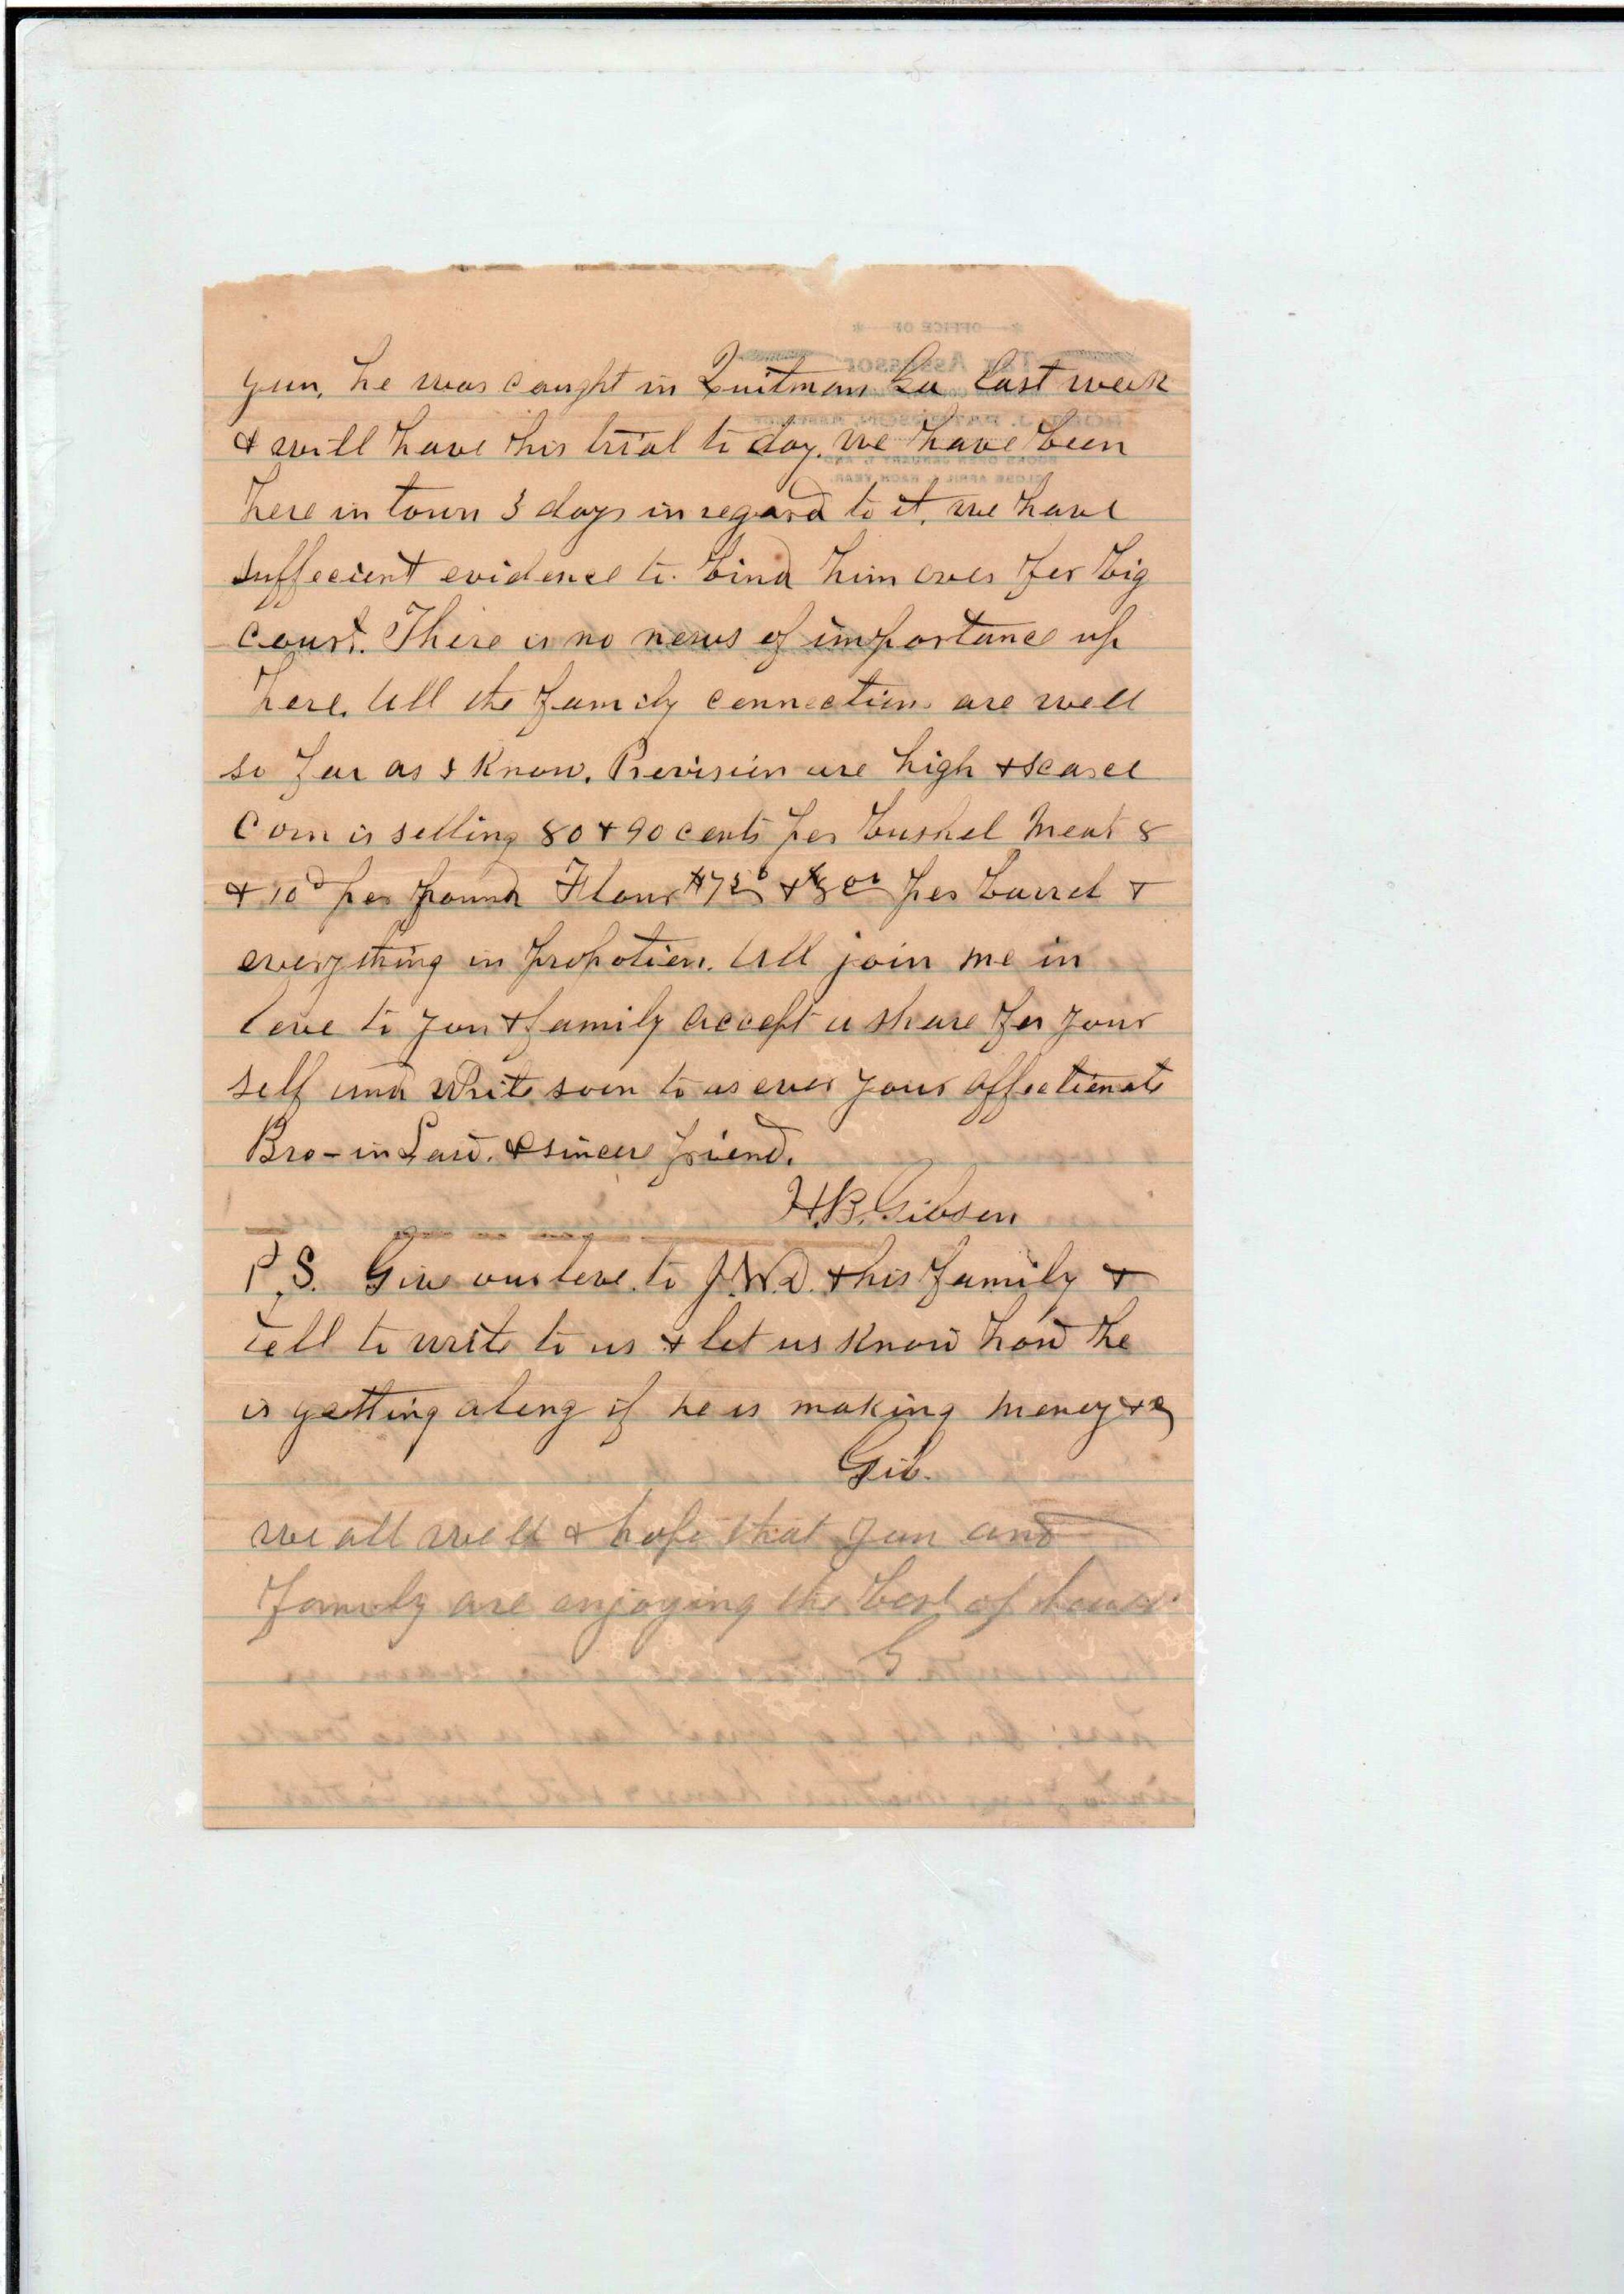 gun, he was caught in Quitman Ga last week
& will have his trial to day. we have been
here in town 3 days in regard to it, we have
suffecient evidence to bind him over for big
court. There is no news of importance up
here. All the family connections are well
so far as I know. Provision are high & scarce
Corn is selling 80 & 90 cents per bushel Meat 8
& 10 per pound Flour $7 & $8 per barrel &
everything in propotion. All join me in
love to you & family accept a share for your
self and write soon to as ever your affectionate
Bro-in Law. & sincere friend.
H.B. Gibson
P.S. Give our love to J.W.D. & his family &
tell to write to us & let us know how he
is getting along if he is making money &c
Gib.
we all well & hope that you and
family are enjoying the best of
G
OFFICE OF
Tax Assessor
J. PATTERSON, ASSESSOR
BOOKS OPEN JANUARY 1 AND
CLOSE APRIL 1 EACH YEAR.